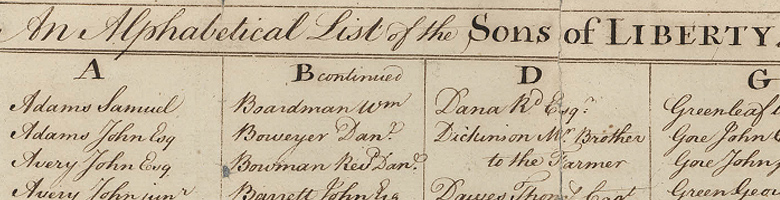 An Alphabetical List of the Sons of LIBERTY.
A
Adams Samuel
Adams John Esq
Avery John Esq
Avery John junr
B continued
Boardman Wm
Boweyer Danl
Bowman Revd Danl
Barrett John Esq
D
Dana Rd Esqr
Dickinson Mr Brother
to the Farmer
Dawes Thos Capt
G
Greenleaf
Gore John
Gore John
Green Geo